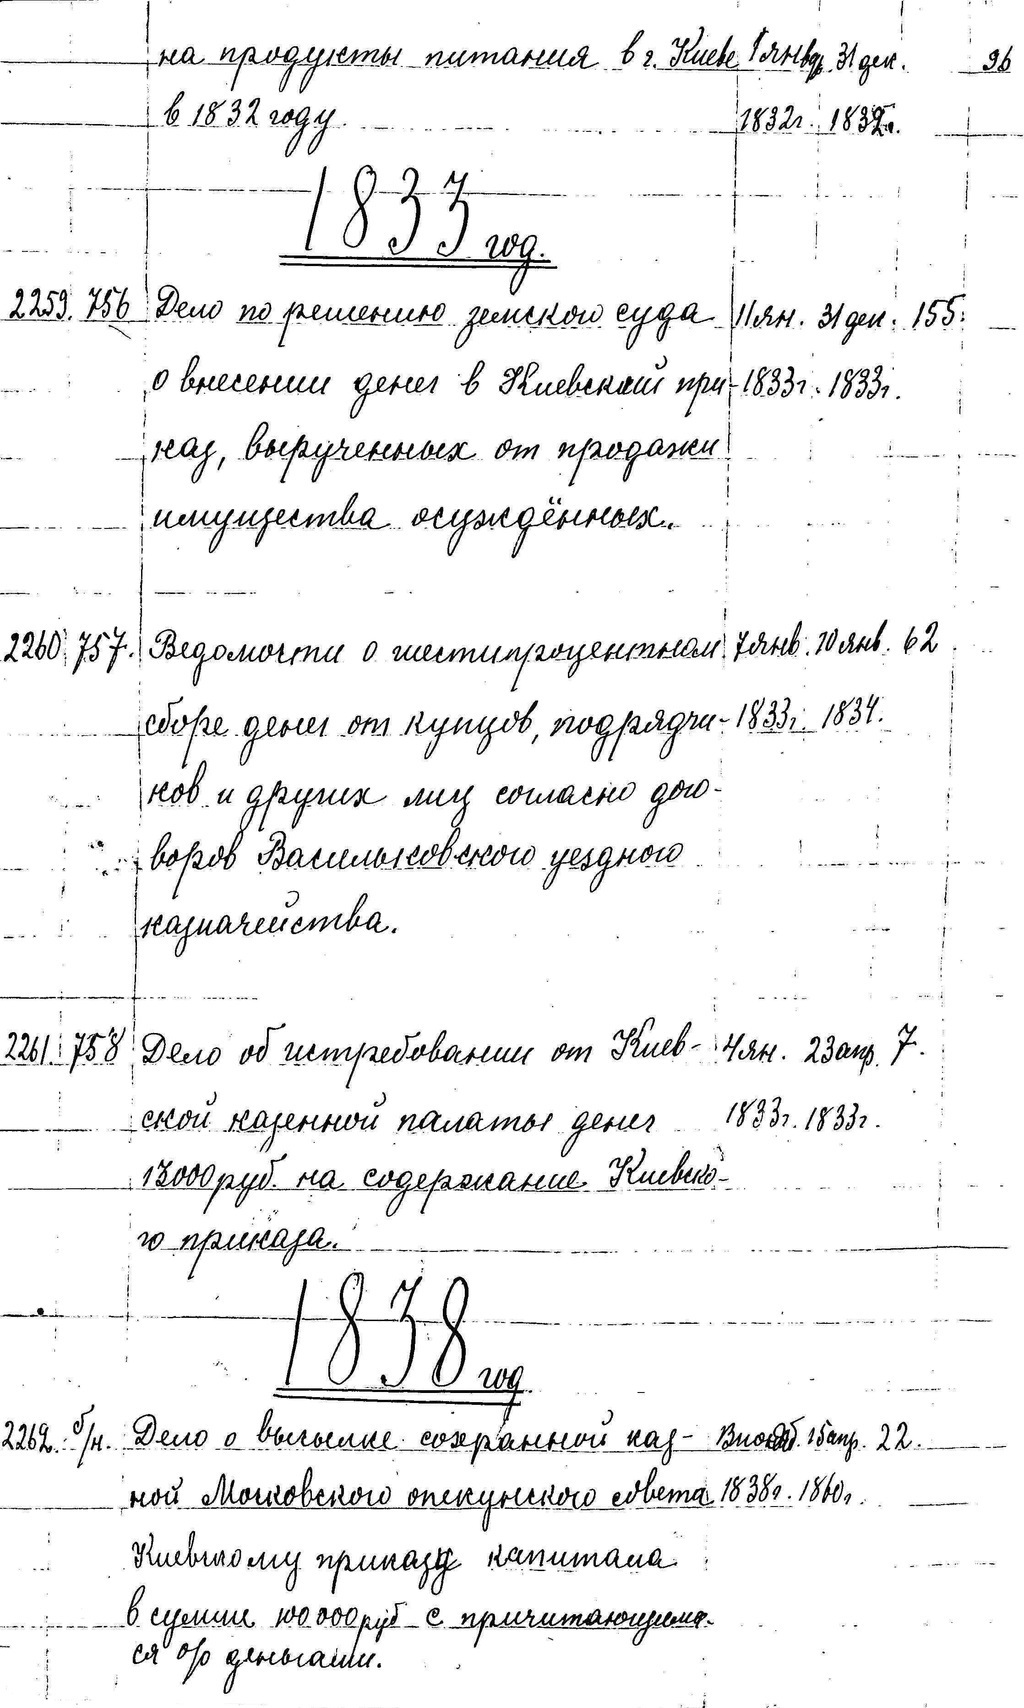 на продукты питания в г. Киеве 1 январ. 31 дек. 96
в 1832 году. 1832г. 1832г.
1833 год.
2259. 756 Дело по решению земского суда 11 ян. 31 дек. 155.
о внесении денег в Киевский при- 1833г. 1833г.
каз, вырученных от продажи
имущества осуждённых.
2260 757. Ведомости о шестипроцентном 7 янв. 10 янв. 62
сборе денег от купцов, подрядчи- 1833г. 1834.
ков и других лиц согласно дого-
воров Васильковского уездного
казначейства.
2261. 758 Дело об истребовании от Киев- 4 ян. 23 апр. 7.
ской казенной палаты денег 1833г. 1833г.
13000 руб. на содержание Киевско-
го приказа.
1838 год
2262. б/н. Дело о высылке сохранной каз- 15 апр. 22.
ной Московского опекунского совета 1838г. 1860г.
Киевскому приказу капитала
в сумме 100 000 руб с причитающими-
ся о/о деньгами.